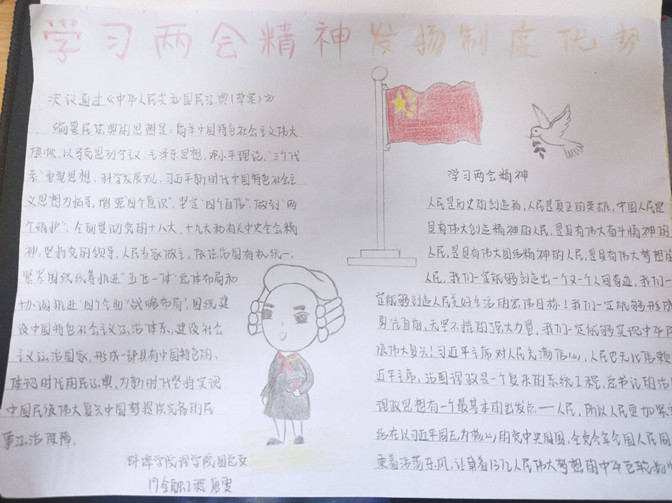 学习两会精神发扬制度优势
决议通过《中华人民共和国民法典(草案)》
编纂民法典的思想是：高举中国特色社会主义伟大
旗帜，以马克思列宁主义、毛泽东思想、邓小平理论、"三个代
表"重要思想、科学发展观、习近平新时代中国特色社会主
义思想为指导，增强"四个意识"，坚定"四个自信"，做到"两
个维护"，全面贯彻党的十八大、十九大和
精
神，坚持党的领导、人民当家做主、依法治国有机统一，
紧紧围绕统筹推进"五位一体"总体布局和
协调推进"四个全面"战略布局，围绕建
设中国特色社会主义法治体系、建设社会
主义法治国家，形成一部具有中国特色的、
体现时代的民法典，为新时代坚持
中国民族伟大复兴中国梦提供完备的民
事法治保障。
学习两会精神
人民是历史的创造者，人民是真正的英雄，中国人民是
具有伟大创造精神的人民，是具有伟大奋斗精神的
人民，是具有伟大团结精神的人民，是具有伟大梦想
人民，我们一定能够创造出一个又一个人间奇迹，我们一
定能够创造人民美好生活的宏伟目标！我们一定能够形成
勇往直前、无坚不摧的强大力量，我们一定能够实现中华民
族伟大复兴！习近平主席对人民充满信心，人民
近平主席，治国理政是一个复杂的系统工程，总书记的治国
理政思想有一个最基本的出发点——人民，所以人民更加紧
结在以习近平同志为核心的党中央周围，全党全军全国人民同
乘着浩荡东风，让承载着13亿人民伟大梦想的中华巨轮